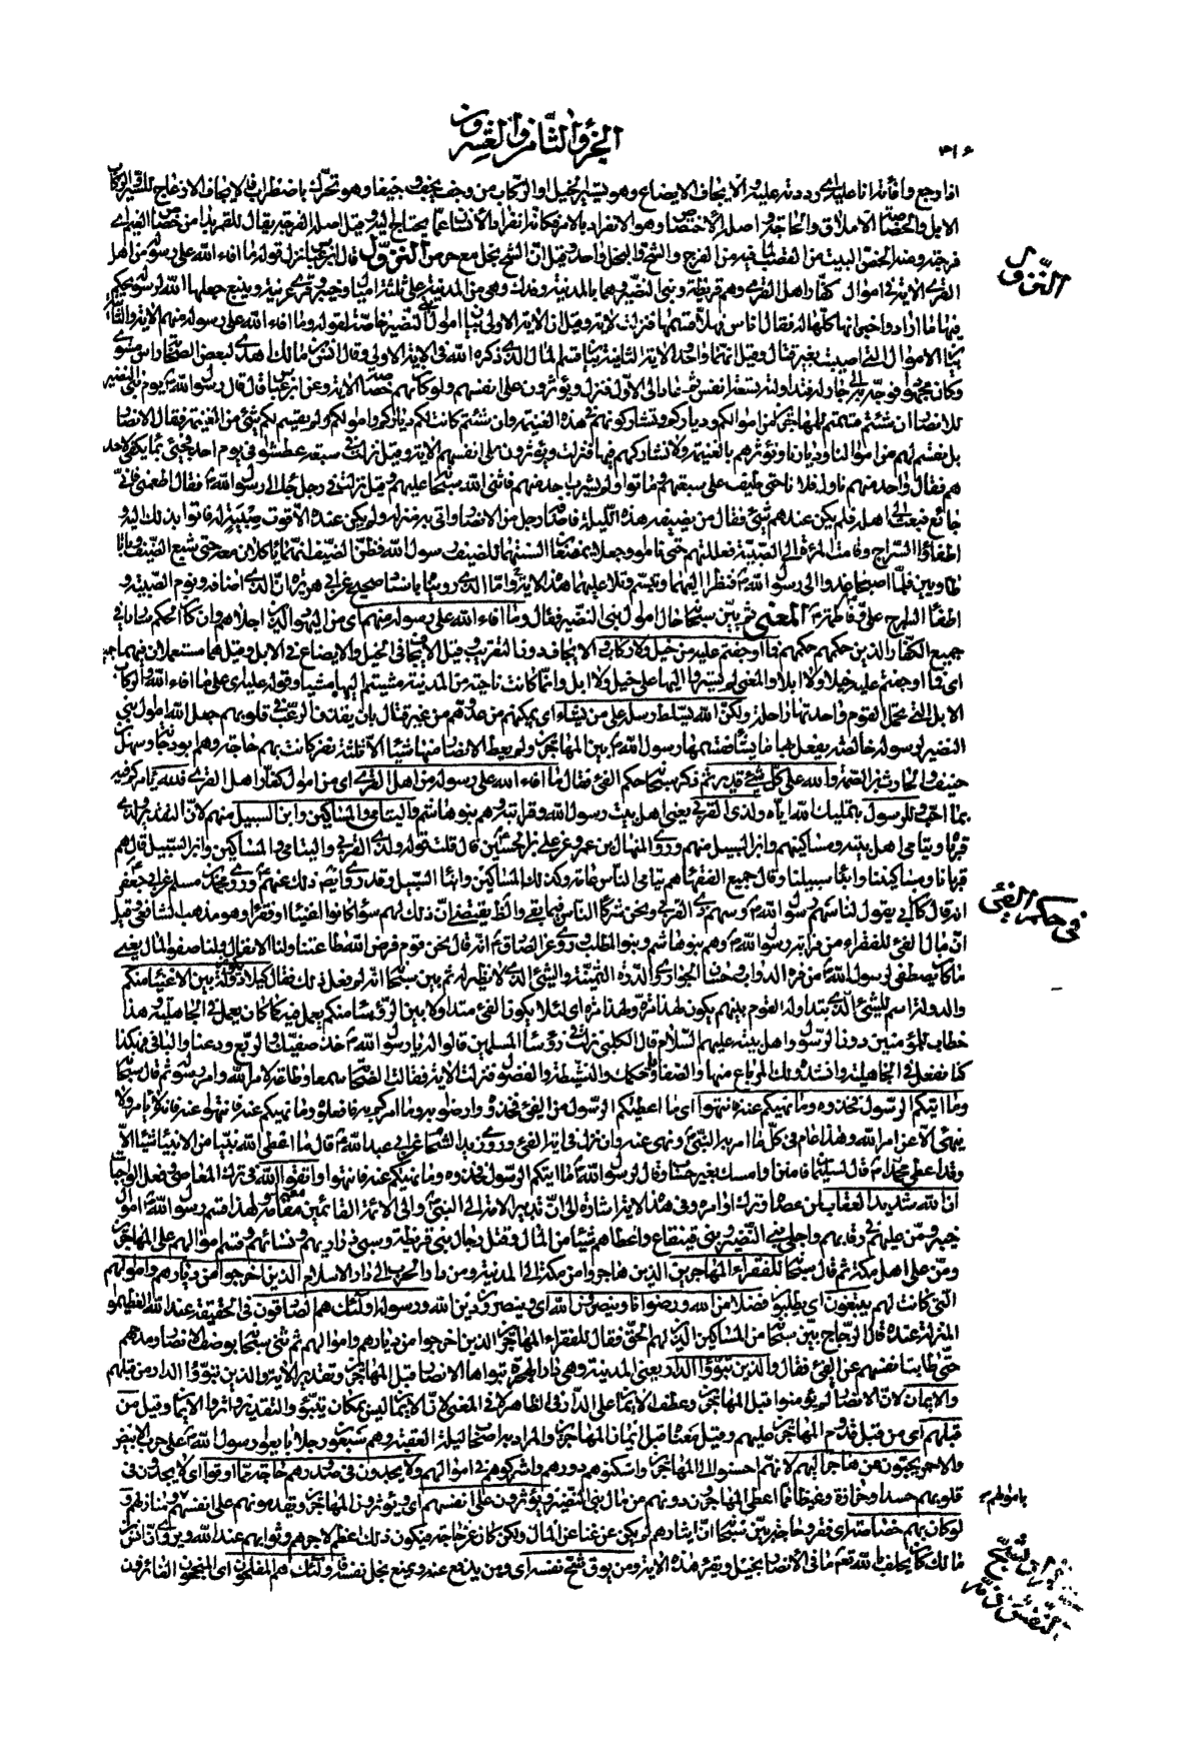 الجزؤ الثامن والعشرون
٣١٦
اذا رجع وافأته انا عليه اى رددته عليه والايجاف الايضاع وهو تسيير الخيل او الركاب من وجف يجف وجيفا وهو تحرك باضطراب فالايجاف الازعاج للسير والركاب
الابل والخصاصة الاملاق والحاجة واصله الاختصاص وهو الانفراد بالامر فكانه انفراد الانسان عما يحتاج اليه وقيل اصله الفرجة يقال للقمر بدا من خصاص الغيم اى
فرجته ومنه الخص البيت من القصب لما فيه من الفرج والشح والبخل واحد وقيل ان الشح بخل مع حرص النزول قال ابن عباس نزل قوله ما افاء الله على رسوله من اهل
النزول
القرى الاية فى اموال كفار اهل القرى وهم قريظة وبنى النضير وهما بالمدينة وفدك وهى من المدينة على ثلثة اميال وخيبر وقرى عرينة وينبع جعلها الله لرسوله يحكم
فيها ما اراد واخبر انها كلها له فقال اناس فهلا قسمها فنزلت الاية وقيل ان الاية الاولى بيان اموال بنى النضير خاصة لقوله وما افاء الله على رسوله منهم الاية والثانية
بيان الاموال التى اصيبت بغير قتال وقيل انهما واحد والاية الثانية بيان قسم المال الذى ذكره الله فى الاية الاولى وقال انس بن مالك اهدى لبعض الصحابة راس مشوى
وكان مجهودا فوجه به الى جار له فتداولته تسعة انفس ثم عاد الى الاول فنزل ويؤثرون على انفسهم ولو كان بهم خصاصة الاية وعن ابن عباس قال قال رسول الله يوم بنى النضير
للانصار ان شئتم قسمتم للمهاجرين من اموالكم ودياركم وتشاركونهم فى هذه الغنيمة وان شئتم كانت لكم دياركم واموالكم ولم يقسم لكم شئ من الغنيمة فقال الانصار
بل نقسم لهم من اموالنا وديارنا ونؤثرهم بالغنيمة ولا نشاركهم فيها فنزلت ويؤثرون على انفسهم الاية وقيل نزلت فى سبعة عطشوا فى يوم احد فجئ بماء يكفى لاحد
هم فقال واحد منهم ناول فلانا حتى طيف على سبعتهم وماتوا ولم يشرب احد منهم فاثنى الله سبحانه عليهم وقيل نزلت فى رجل جاء الى رسول الله فقال اطعمنى فانى
جائع فبعث الى اهله فلم يكن عندهم شئ فقال من يضيفه هذه الليلة فاضافه رجل من الانصار واتى به منزله ولم يكن عنده الا قوت صبية له فاتوا بذلك اليه و
اطفاؤا السراج وقامت المرئة الى الصبية فعللتهم حتى ناموا وجعلا يمضغان السنتهما لضيف رسول الله فظن الضيف انهما ياكلان معه حتى شبع الضيف وباتا
طاويين فلما اصبحا غدوا الى رسول الله فنظر اليهما وتبسم وتلا عليهما هذه الاية واما الذى رويناه باسناد صحيح عن ابى هريرة ان الذى اضافه ونوم الصبية و
اطفأ السراج على وفاطمة المعنى ثم بين سبحانه حال اموال بنى النضير فقال وما افاء الله على رسوله منهم اى من اليهود الذين اجلاهم وان كان الحكم ساريا فى
جميع الكفار الذين حكمهم حكمهم فما اوجفتم عليه من خيل ولا ركاب والايجاف دون التقريب وقيل الايجاف فى الخيل والايضاع فى الابل وقيل هما مستعملان فيهما جميعا
اى فما اوجفتم عليه خيلا ولا ابلا والمعنى لم تسيروا اليها على خيل ولا ابل وانما كانت ناحية من المدينة مشيتم اليها مشيا وقوله عليه اى على ما افاء الله والركاب
الابل التى تحمل القوم واحدتها راحلة ولكن الله يسلط رسله على من يشاء اى يمكنهم من عدوهم من غير قتال بان يقذف الرعب فى قلوبهم جعل الله اموال بنى
النضير لرسوله خالصة يفعل بها ما يشاء فقسمها رسول الله بين المهاجرين ولم يعط الانصار منها شيئا الا ثلثة نفر كانت بهم حاجة وهم ابو دجانة وسهل بن
حنيف والحارث بن الصمة والله على كل شئ قدير ثم ذكر سبحانه حكم الفئ فقال ما افاء الله على رسوله من اهل القرى اى من اموال كفار اهل القرى فلله يامركم فيه
بما احب وللرسول بتمليك الله اياه ولذى القربى يعنى اهل بيت رسول الله وقرابته وهم بنو هاشم واليتامى والمساكين وابن السبيل منهم لان التقدير ولذى
قرباه ويتامى اهل بيته ومساكينهم وابن السبيل منهم وروى المنهال بن عمرو عن على بن الحسين قال قلت قوله ولذى القربى واليتامى والمساكين وابن السبيل قال هم
قربانا ومساكيننا وابناء سبيلنا وقال جميع الفقهاء هم يتامى الناس عامة وكذلك المساكين وابناء السبيل وقد روى ايضا ذلك عنهم وروى محمد بن مسلم عن ابى جعفر
انه قال كان ابى يقول لنا سهم رسول الله وسهم ذى القربى ونحن شركاء الناس فيما بقى والظاهر يقتضى ان ذلك لهم سواء كانوا اغنياء او فقراء وهو مذهب الشافعى وقيل
فى حكم الفئ
ان مال الفئ للفقراء من قرابة رسول الله وهم بنو هاشم وبنو المطلب وروى عن الصادق انه قال نحن قوم فرض الله طاعتنا ولنا الانفال ولنا صفو المال يعنى
ما كان يصطفى لرسول الله من فره الدواب وحسان الجوارى والدرة الثمينة والشئ الذى لا نظير له ثم بين سبحانه انه لم فعل ذلك فقال كيلا يكون دولة بين الاغنياء منكم
والدولة اسم للشئ الذى يتداوله القوم بينهم يكون لهذا مرة ولهذا مرة اى لئلا يكون الفئ متداولا بين الرؤساء منكم يعمل فيه كما كان يعمل فى الجاهلية هذا
خطاب للمؤمنين دون الرسول واهل بيته عليهم السلام قال الكلبى نزلت فى رؤساء المسلمين قالوا له يا رسول الله خذ صفيك والربع ودعنا والباقى فهكذا
كنا نفعل فى الجاهلية وانشدوا لك المرباع منها والصفايا وحكمك والنشيطة والفضول فنزلت الاية فقالت الصحابة سمعا وطاعة لامر الله وامر رسوله ثم قال سبحانه
وما اتيكم الرسول فخذوه وما نهيكم عنه فانتهوا اى ما اعطيكم الرسول من الفئ فخذوه وارضوا به وما امركم به فافعلوه وما نهيكم عنه فانتهوا عنه فانه لا يامر ولا
ينهى الا عن امر الله وهذا عام فى كل ما امر به النبى ونهى عنه وان نزل فى اية الفئ وروى زيد الشحام عن ابى عبد الله قال ما اعطى الله نبيا من الانبياء شيئا الا
وقد اعطى محمدا قال لسليمان فامنن او امسك بغير حساب وقال لرسول الله ما اتيكم الرسول فخذوه وما نهيكم عنه فانتهوا واتقوا الله فى ترك المعاصى وفعل الواجبات
ان الله شديد العقاب لمن عصاه وترك اوامره وفى هذه الاية اشارة الى ان تدبير الامة الى النبى والى الائمة القائمين مقامه ولهذا قسم رسول الله اموال
خيبر ومن عليهم فى رقابهم واجلى بنى النضير وبنى قينقاع واعطاهم شيئا من المال وقتل رجال بنى قريظة وسبى ذراريهم ونسائهم وقسم اموالهم على المهاجرين
ومن على اهل مكة ثم قال سبحانه للفقراء المهاجرين الذين هاجروا من مكة الى المدينة ومن دار الحرب الى دار الاسلام الذين اخرجوا من ديارهم واموالهم
التى كانت لهم يبتغون اى يطلبون فضلا من الله ورضوانا وينصرون الله اى وينصرون دين الله ورسوله اولئك هم الصادقون فى الحقيقة عند الله العظيموا
المنزلة عنده قال الزجاج بين سبحانه من المساكين الذين لهم الحق فقال للفقراء المهاجرين الذين اخرجوا من ديارهم واموالهم ثم ثنى سبحانه بوصف الانصار ومدحهم
حتى طابت انفسهم عن الفئ فقال والذين تبوؤا الدار يعنى المدينة وهى دار الهجرة تبواها الانصار قبل المهاجرين وتقدير الاية والذين تبوؤا الدار من قبلهم
والايمان لان الانصار لم يؤمنوا قبل المهاجرين وعطف الايمان على الدار فى الظاهر لا فى المعنى لان الايمان ليس بمكان يتبوء والتقدير واثروا الايمان وقيل من
قبلهم اى من قبل قدوم المهاجرين عليهم وقيل معناه قبل ايمان المهاجرين والمراد به اصحاب ليلة العقبة وهم سبعون رجلا بايعوا رسول الله على حرب الابيض
والاحمر يحبون من هاجر اليهم لانهم احسنوا الى المهاجرين واسكنوهم دورهم واشركوهم فى اموالهم ولا يجدون فى صدورهم حاجة مما اوتوا اى لا يجدون فى
قلوبهم حسدا وحزازة وغيظا مما اعطى المهاجرون دونهم من مال بنى النضير ويؤثرون على انفسهم اى ويؤثرون المهاجرين ويقدمونهم على انفسهم ومنازلهم و
باموالهم
لو كان بهم خصاصة اى فقر وحاجة بين سبحانه ان ايثارهم لم يكن عن غناء عن المال ولكن كان عن حاجة فيكون ذلك اعظم لاجرهم وثوابهم عند الله ويروى ان انس
مالك كان يحلف بالله تعالى ما فى الانصار بخيل ويقرء هذه الاية ومن يوق شح نفسه اى ومن يدفع عنه ويمنع بخل نفسه فاولئك هم المفلحون اى المنجحون الفائزون